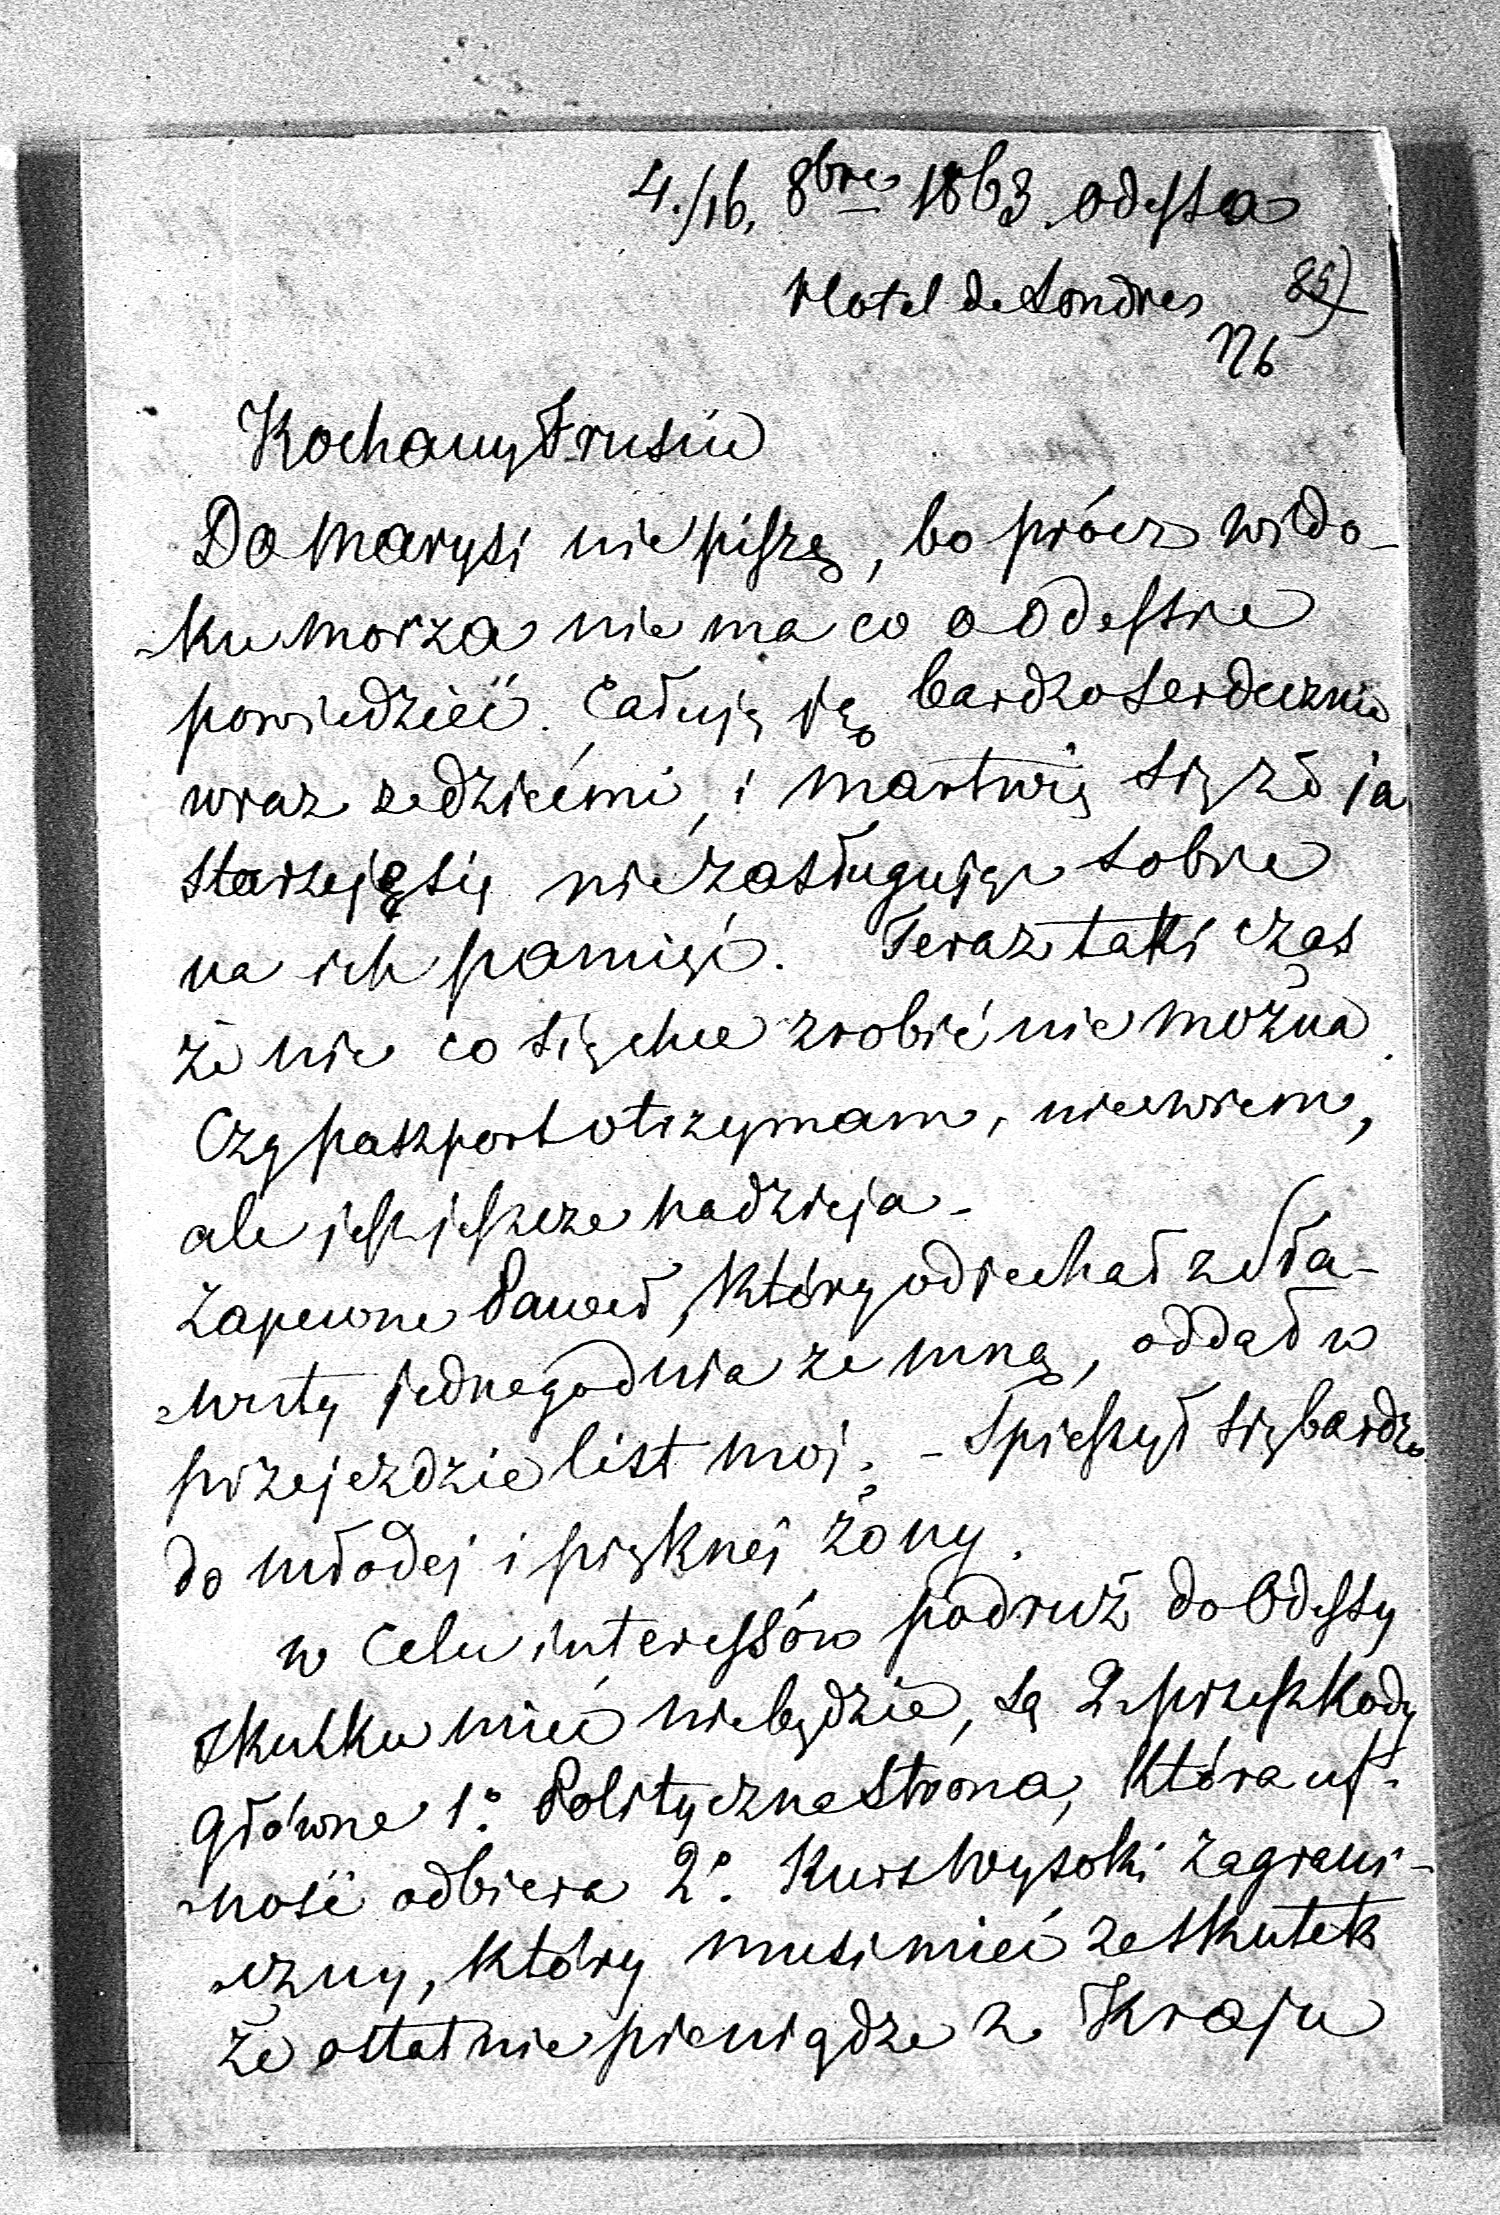 4./16. 8bre 1863 Odessa
Hotel de Londres
Kochany Frusiu
Do Marysi nie piszę, bo prócz wido-
-ku morza nie ma co o Odessie
powiedzieć. Całuję ją bardzo serdecznie
wraz z dziećmi, i martwię się żé ja
starzeję się nie zasługując sobie
na ich pamięć. Teraz taki czas
żé nie co się chce zrobić nie można.
Czy paszport otrzymam, nie wiem,
ale jest jeszcze nadzieja -
Zapewne Paweł, który odjechał z Sła-
-wuty jednego dnia ze mną, oddał w
przejezdzie list moj. - Spieszył się bardzo
do młodej i pięknéj żony.
w celu interessów podruż do Odessy
skutku mieć nie będzie, są 2 przeszkody
główne 1° Polityczna strona, która uf-
-ność odbiera 2° Kurs wysoki zagrani-
-czny, który musi mieć za skutek
że ostatnie pieniądze z Kraju